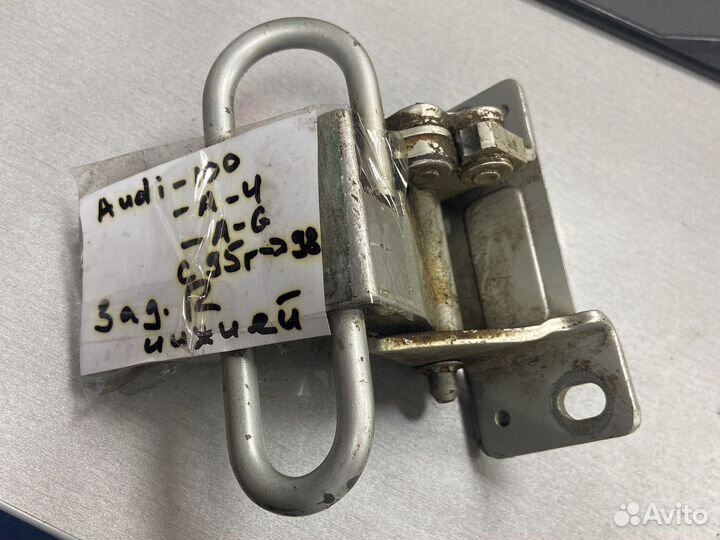 Audi-100
-A-4
-A-6
с 95г→98
Зад. П
нижней
Avito